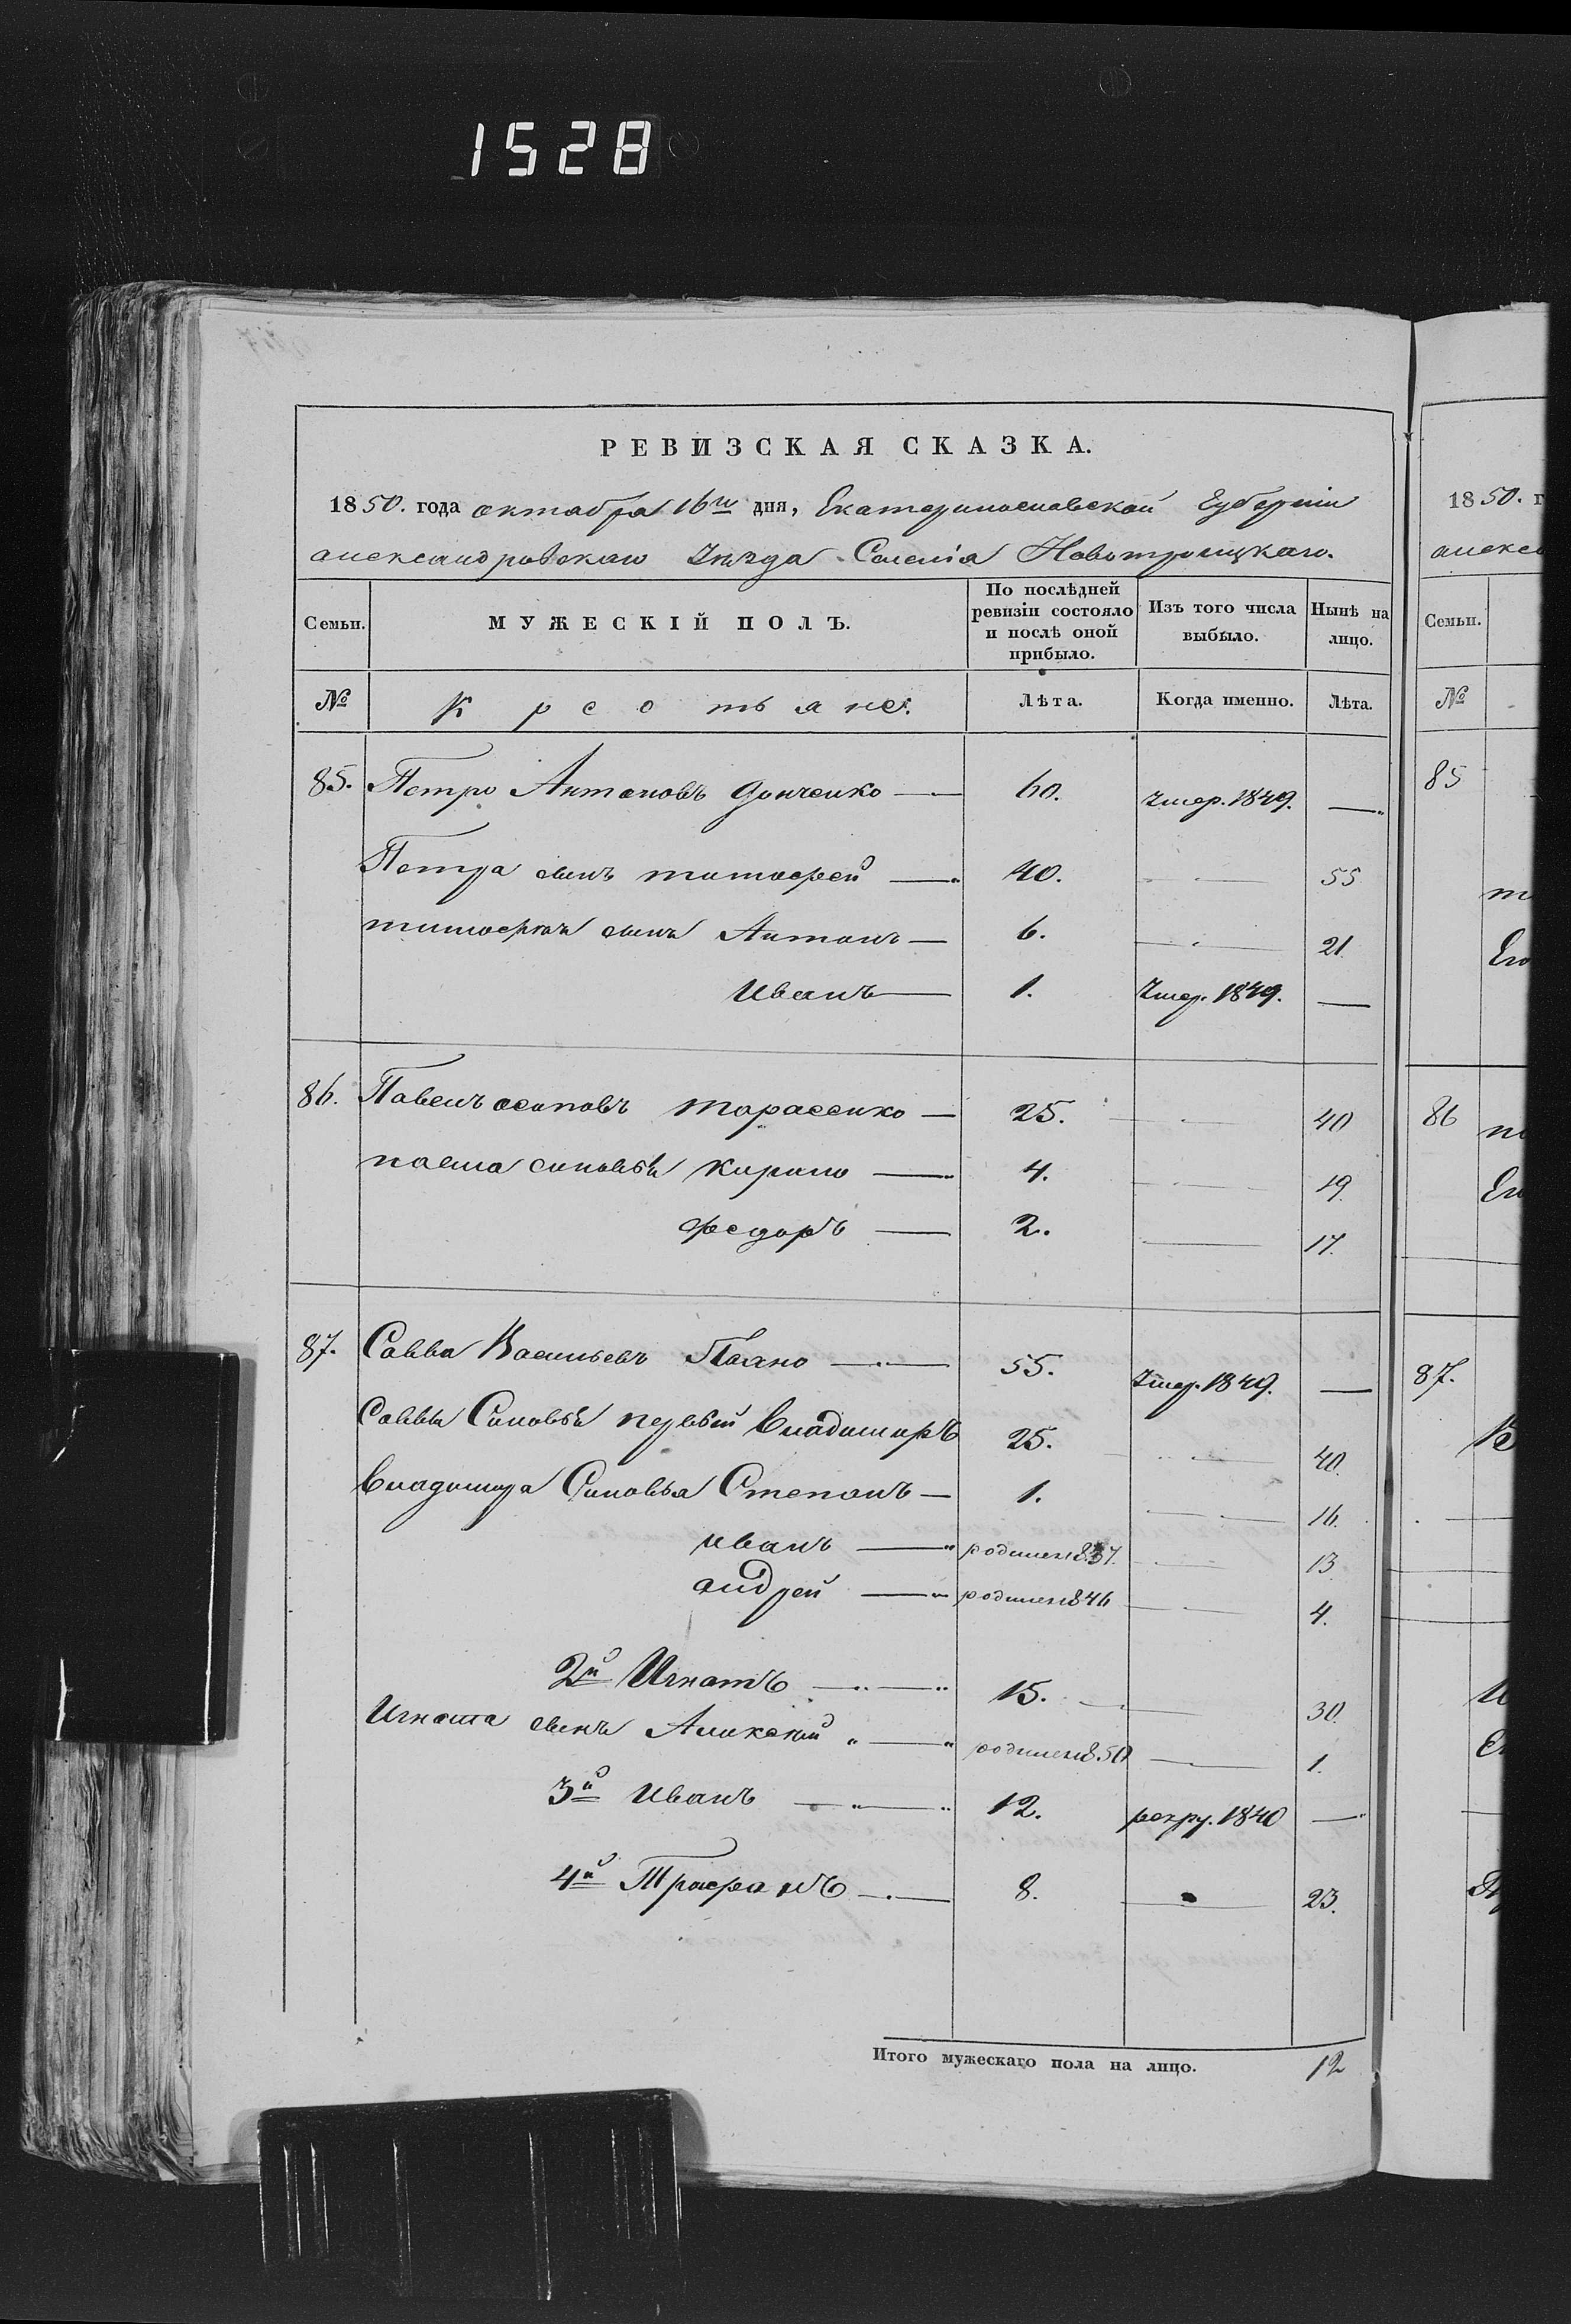 1528
РЕВИЗСКАЯ СКАЗКА.
1850. года октабра 16го дня, Екатеринославской Губерніи
александровскаго Уѣзда Селенія Новотроицкаго.
Семьи. МУЖЕСКІЙ ПОЛЪ. По послѣдней ревизіи состояло и послѣ оной прибыло. Изъ того числа выбыло. Нынѣ на лицо.
№ Крестьяне. Лѣта. Когда именно. Лѣта.
85. Петро Антоновъ Донченко — 60. Умер. 1849. —
Петра сынъ тимофей — 40. — 55
тимофея сынъ Антонъ — 6. — 21
Иванъ — 1. Умер. 1849. —
86. Павелъ осиповъ тарасенко — 25. — 40
павла синовья Кирило — 4. — 19.
федоръ — 2. — 17.
87. Савва Васильевъ Пахно — 55. Умер. 1849. —
Саввы Синовья первый Владимиръ 25. — 40.
Владимира Синовья Степанъ — 1. — 16.
иванъ — родился 1837. — 13
андрей — родился 1846 — 4.
2й Игнатъ — 15. — 30.
Игната сынъ Аликсей — родился 1850 — 1.
3й Иванъ — 12. рекру. 1840 —
4й Трофанъ — 8. — 23.
Итого мужескаго пола на лицо. 12
1850. г
алексо
Семьи.
№
85
Его
86
Его
87.